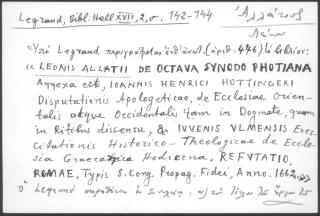 Legrand, Bibl. Hell XVII, 2, σ. 142-144
Ἀλλάτιος
Λέων
Ὑπὸ Legrand περιγράφεται (ἀριθ. 446) τὸ βιβλίον:
« LEONIS ALLATII DE OCTAVA SYNODO PHOTIANA
Annexa est, IOANNIS HENRICI HOTTINGERI
Disputationis Apologeticae, de Ecclesiae Orien-
talis atque Occidentalis tam in Dogmate, quam
in Ritibus dissensu, & IUVENIS ULMENSIS Exer-
citationis Historico-Theologicae de Eccle-
sia Graecanica Hodierna, REFUTATIO.
ROMAE, Typis S. Cong. Propag. Fidei, Anno. 1662.»
Ὁ Legrand